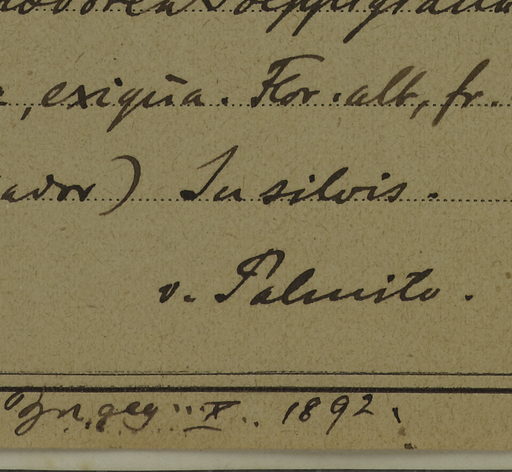 , exigua. Flor. alb, fr.
ador) In silvis.
v. Palmito.
X. 1892.